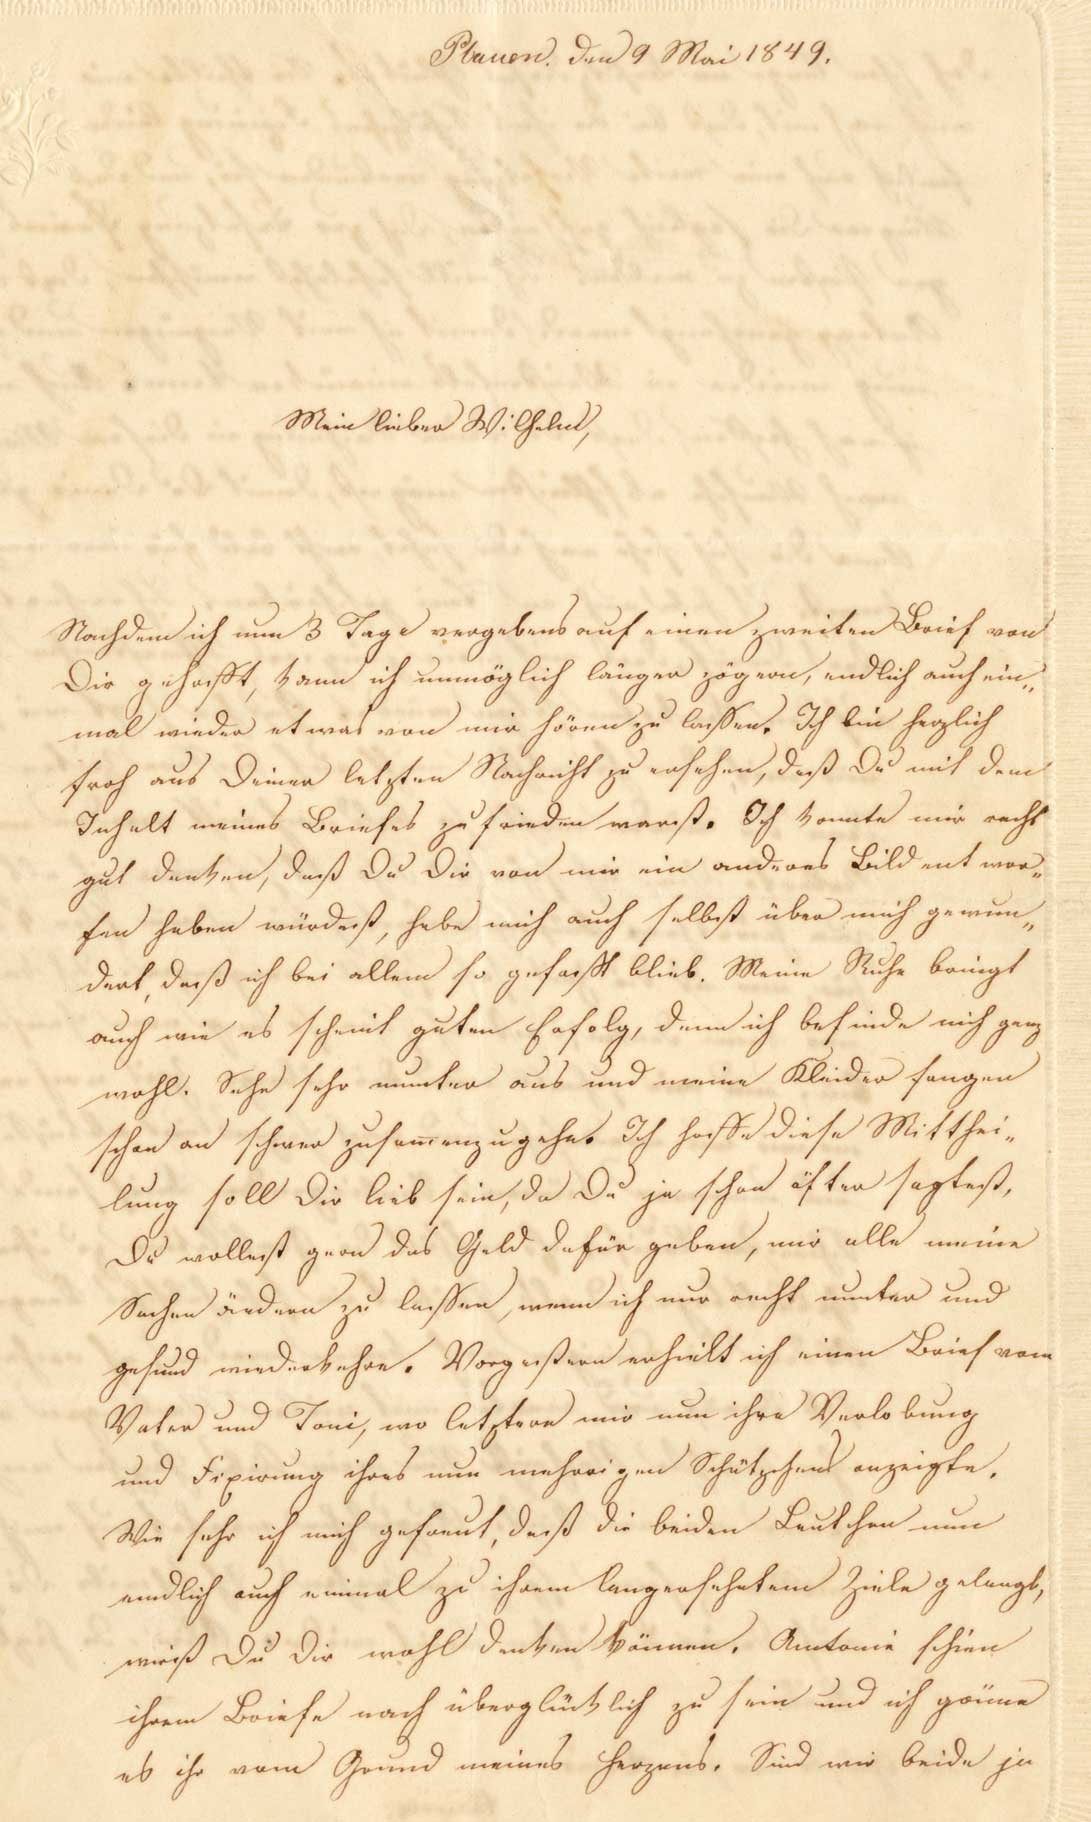 Plauen. den 9 Mai 1849.
Mein lieber Wilhelm,
Nachdem ich nun 3 Tage vergebens auf einen zweiten Brief von
Dir gehofft, kann ich unmöglich länger zögern, endlich auch ein„
mal wieder etwas von mir hören zu lassen. Ich bin herzlich
froh aus Deiner letzten Nachricht zu ersehen, daß Du mit dem
Inhalt meines Briefes zufrieden warst. Ich konnte mir recht
gut denken, daß Du Dir von mir ein anderes Bild entwor„
fen haben würdest, habe mich auch selbst über mich gewun„
dert, daß ich bei allem so gefaßt blieb. Meine Ruhe bringt
auch wie es scheint guten Erfolg, denn ich befinde mich ganz
wohl. Sehe sehr munter aus und meine Kleider fangen
schon an schwer zusammenzugehn. Ich hoffe diese Mitthei„
lung soll Dir lieb sein, da Du ja schon öfter sagtest,
Du wollest gern das Geld dafür geben, mir alle meine
Sachen ändern zu lassen, wenn ich nur recht munter und
gesund wiederkehre. Vorgestern erhielt ich einen Brief vom
Vater und Toni, wo letztere mir nun ihre Verlobung
und Fixirung ihres nun mehrigen Schätzchens anzeigte.
Wie sehr ich mich gefreut, daß die beiden Leutchen nun
endlich auch einmal zu ihrem langersehntem Ziele gelangt,
wirst Du Dir wohl denken können. Antonie schien
ihrem Briefe nach überglücklich zu sein und ich gönne
es ihr vom Grund meines Herzens. Sind wir beide ja